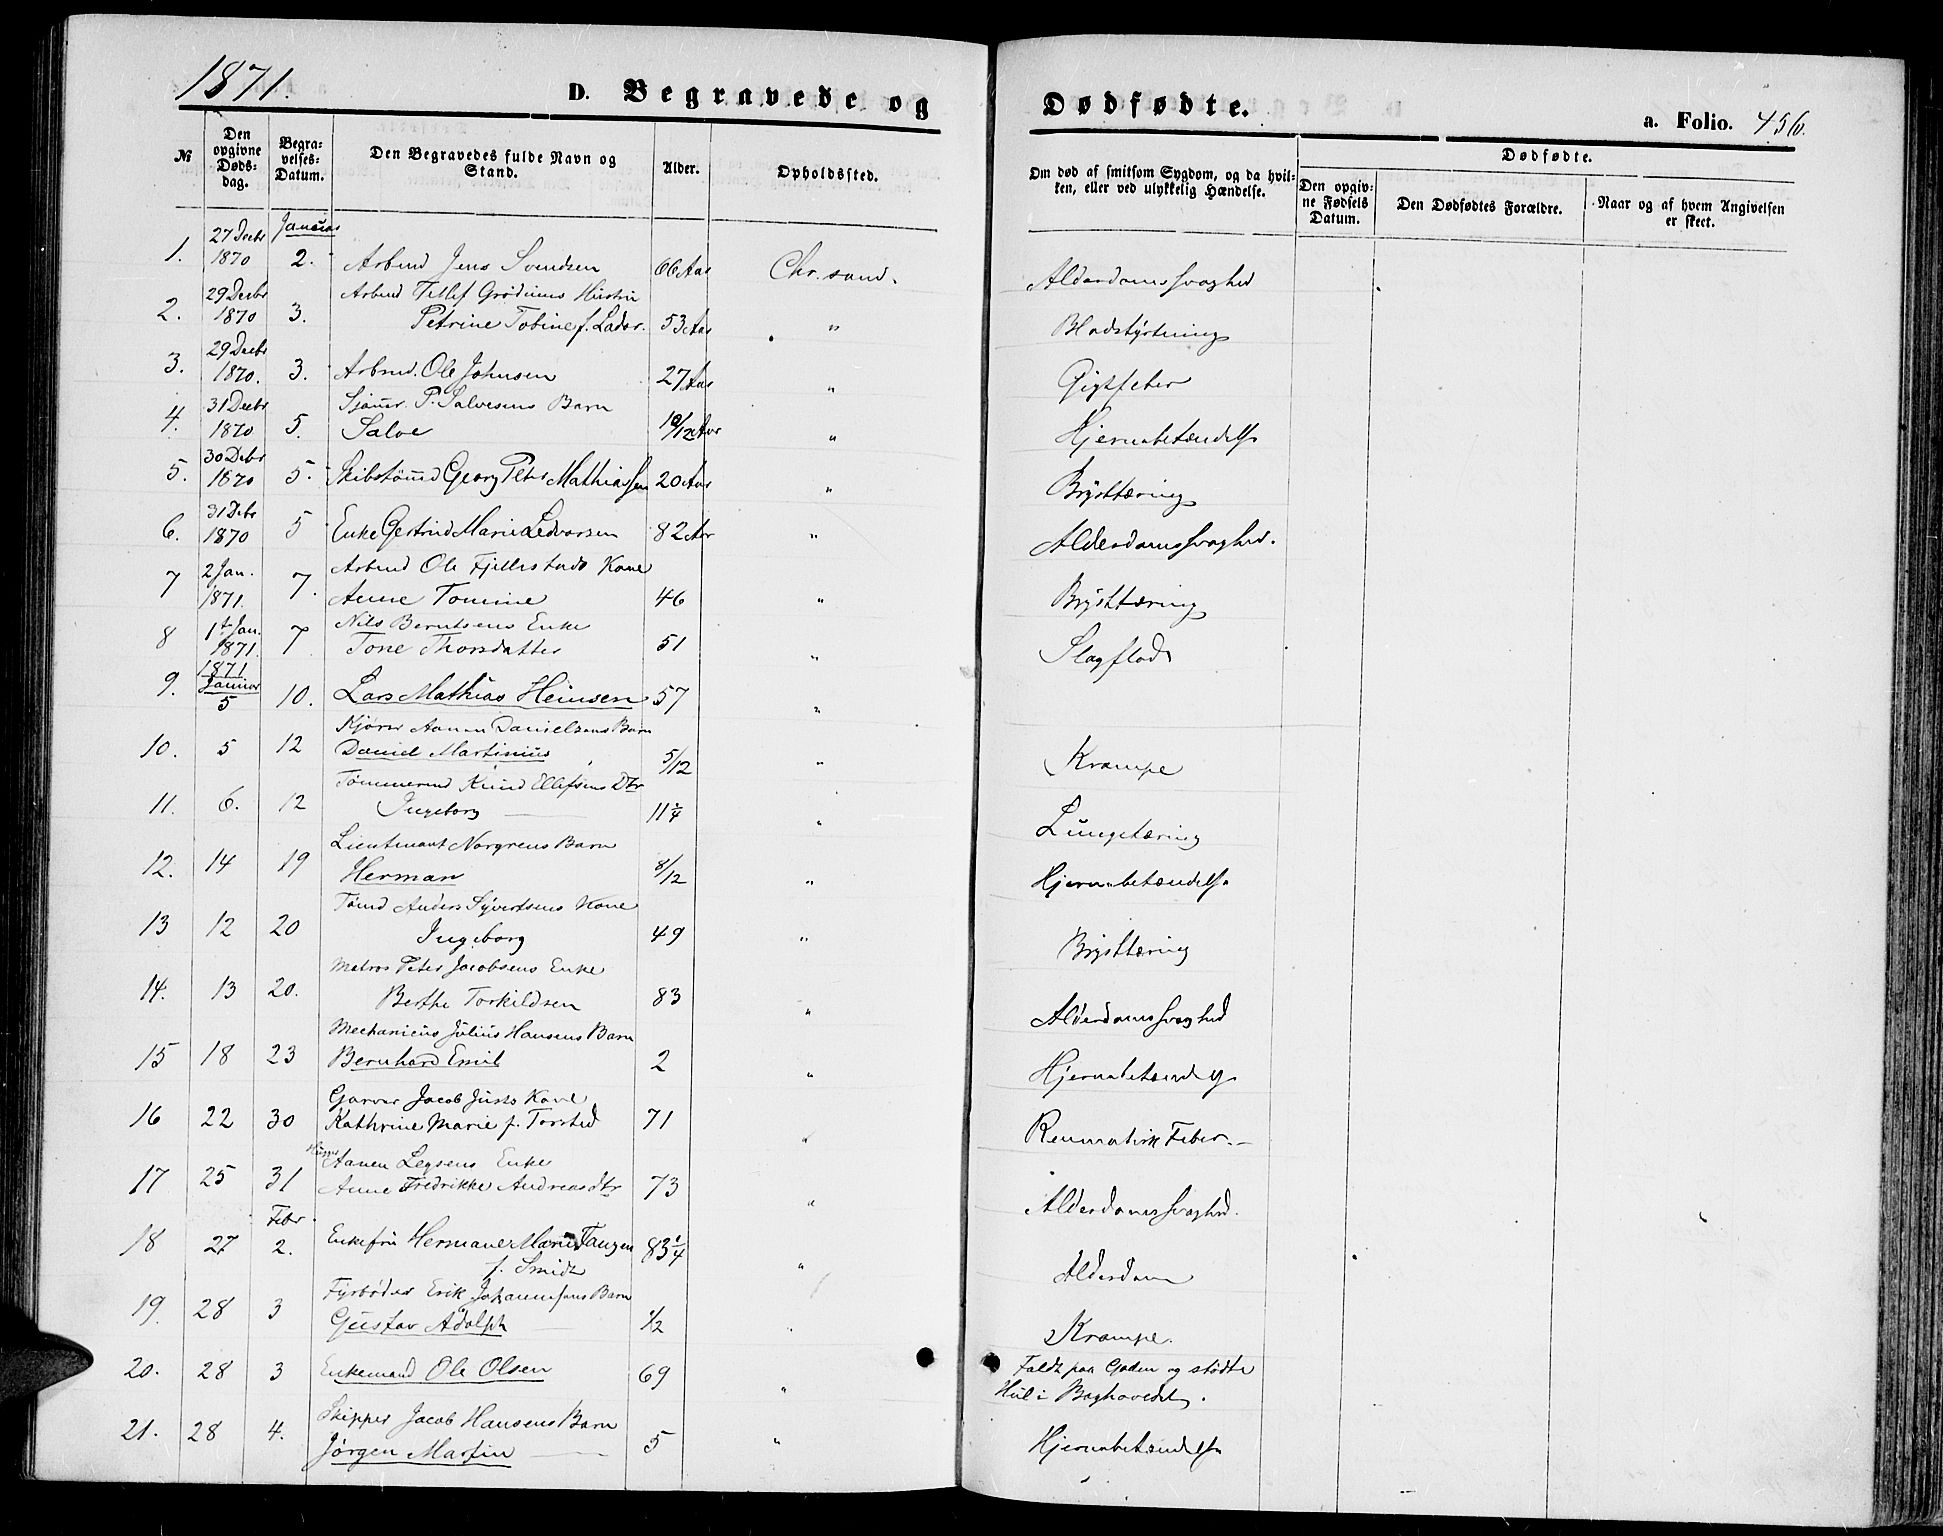 1871.
D. Begravede og Dødfødte.
a. Folio. 456.
№
Den opgivne Døds-dag.
Begra-velses-Datum.
Den Begravedes fulde Navn og Stand.
Alder.
Opholdssted.
Om død af smitsom Sygdom, og da hvil-ken, eller ved ulykkelig Hændelse.
Dødfødte.
Den opgiv-ne Fødsels Datum.
Den Dødfødtes Forældre.
Naar og af hvem Angivelsen er skeet.
27 Decbr Januar
1. 1870 2. Arbmd Jens Svendsen 66 Aar Chr.sand. Alderdomssvaghed
29 Decbr Arbmd Tellef Hustru
2. 1870 3. Petrine Tobine f. Ladar. 53 Aar " Blodstyrtning
29 Decbr
3. 1870. 3. Arbmd. Ole Johnsen 27 Aar " Gigtfeber
31 Decbr Sjømr. P. Salvesens Barn
4. 1870 5. Salve 10/12 Aar " Hjernebetændelse
30 Debr
5. 1870 5. Skibstømd Georg Peter Mathiassen 20 Aar " Brysttæring
31 Debr
6. 1870 5 Enke Gertrud Marie Ledvorsen 82 Aar " Alderdomssvaghed.
2 Jan. Arbmd Ole Fjellestads Kone
7 1871. 7. Anne Tomine 46 " Brysttæring
1ste Jan. Nils Berntsens Enke
8 1871. 7 Tone Thorsdatter 51 " Slagflod
1871
Januar
9. 5 10. Lars Mathias Heinsen 57 "
Kjører Aanen Danielsens Barn
10. 5 12 Daniel Martinius 5/12 " Krampe
Tømmermd Knud Ellefsens Dtr
11. 6. 12 Ingeborg 11 3/4 " Lungetæring
Lieutenant Norgrens Barn
12. 14 19 Herman 8/12 " Hjernebetændelse
Tømd Anders Syvertsens Kone
13 12 20 Ingeborg 49 " Brysttæring
Matros Peter Jacobsens Enke
14. 13 20. Berthe Torkildsen 83 " Alderdomssvaghed
Mechanicus Julius Hansens Barn
15 18 23 Bernhard Emil 2 " Hjernebetændelse
Garver Jacob Justs Kone
16 22 30 Kathrine Marie f. Torsted 71 " Reumatisk Feber.
Aanen Legsens Enke
17 25 31 Anne Fredrikke Andreasdtr 73 " Alderdomssvaghed.
Febr.
18 27 2. Enkefru Hermane Marie Tangen 83 1/4 " Alderdom
f. Smidt
Fyrbøder Erik Johannesens Barn
19. 28 3 Gustav Adolph 1/2 " Krampe.
20. 28 3 Enkemand Ole Olsen 69 " Faldt paa Gaden og stødte
Hul i Baghovedet.
Skipper Jacob Hansens Barn
21. 28 4. Jørgen Martin 5 " Hjernebetændelse